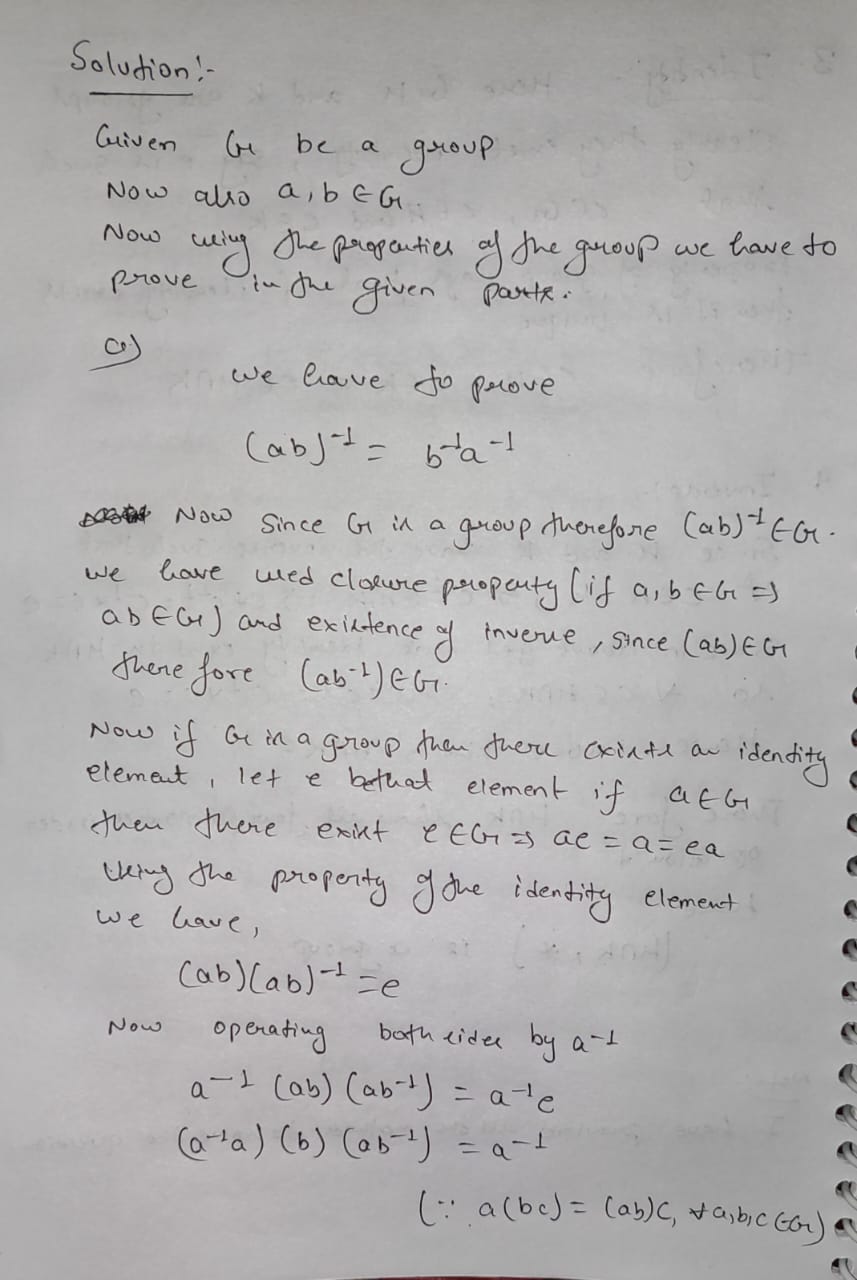 Solution:-
Given G be a group
Now also a, b ∈ G.
Now using the properties of the group we have to
prove in the given parts.
a)
we have to prove
(ab)⁻¹ = b⁻¹a⁻¹
Now since G is a group therefore (ab)⁻¹ ∈ G.
we have used closure property (if a, b ∈ G ⇒
ab ∈ G) and existence of inverse, since (ab) ∈ G
there fore (ab⁻¹) ∈ G.
Now if G is a group then there exists an identity
element, let e be that element if a ∈ G
then there exist e ∈ G ⇒ ae = a = ea
Using the property of the identity element
we have,
(ab)(ab)⁻¹ = e
Now operating both sides by a⁻¹
a⁻¹ (ab) (ab⁻¹) = a⁻¹e
(a⁻¹a) (b) (ab⁻¹) = a⁻¹
(∵ a(bc) = (ab)c, ∀ a,b,c ∈ G)